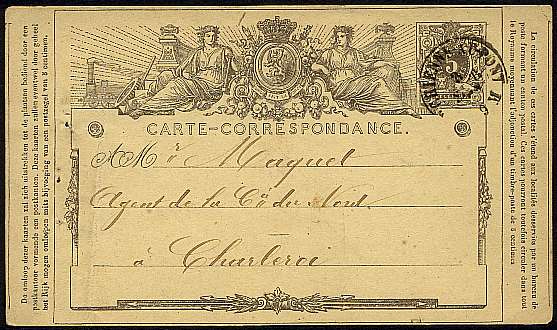 De omloop dezer kaarten zal zich uitstrekken tot de plaatsen bediend door een
postkantoor vormende een postkanton. Deze kaarten zullen evenwel door geheel
het Rijk mogen omloopen mits bijvoeging van een postzegel van 5 centimen.
5
CARTE-CORRESPONDANCE.
A Mr. Maquet
Agent de la Cie du Nord.
à Charleroi
La circulation de ces cartes s'étend aux localités desservies par un bureau de
poste formant un canton postal. Ces cartes pourront toutefois circuler dans tout
le Royaume moyennant l'adjonction d'un timbre-poste de 5 centimes